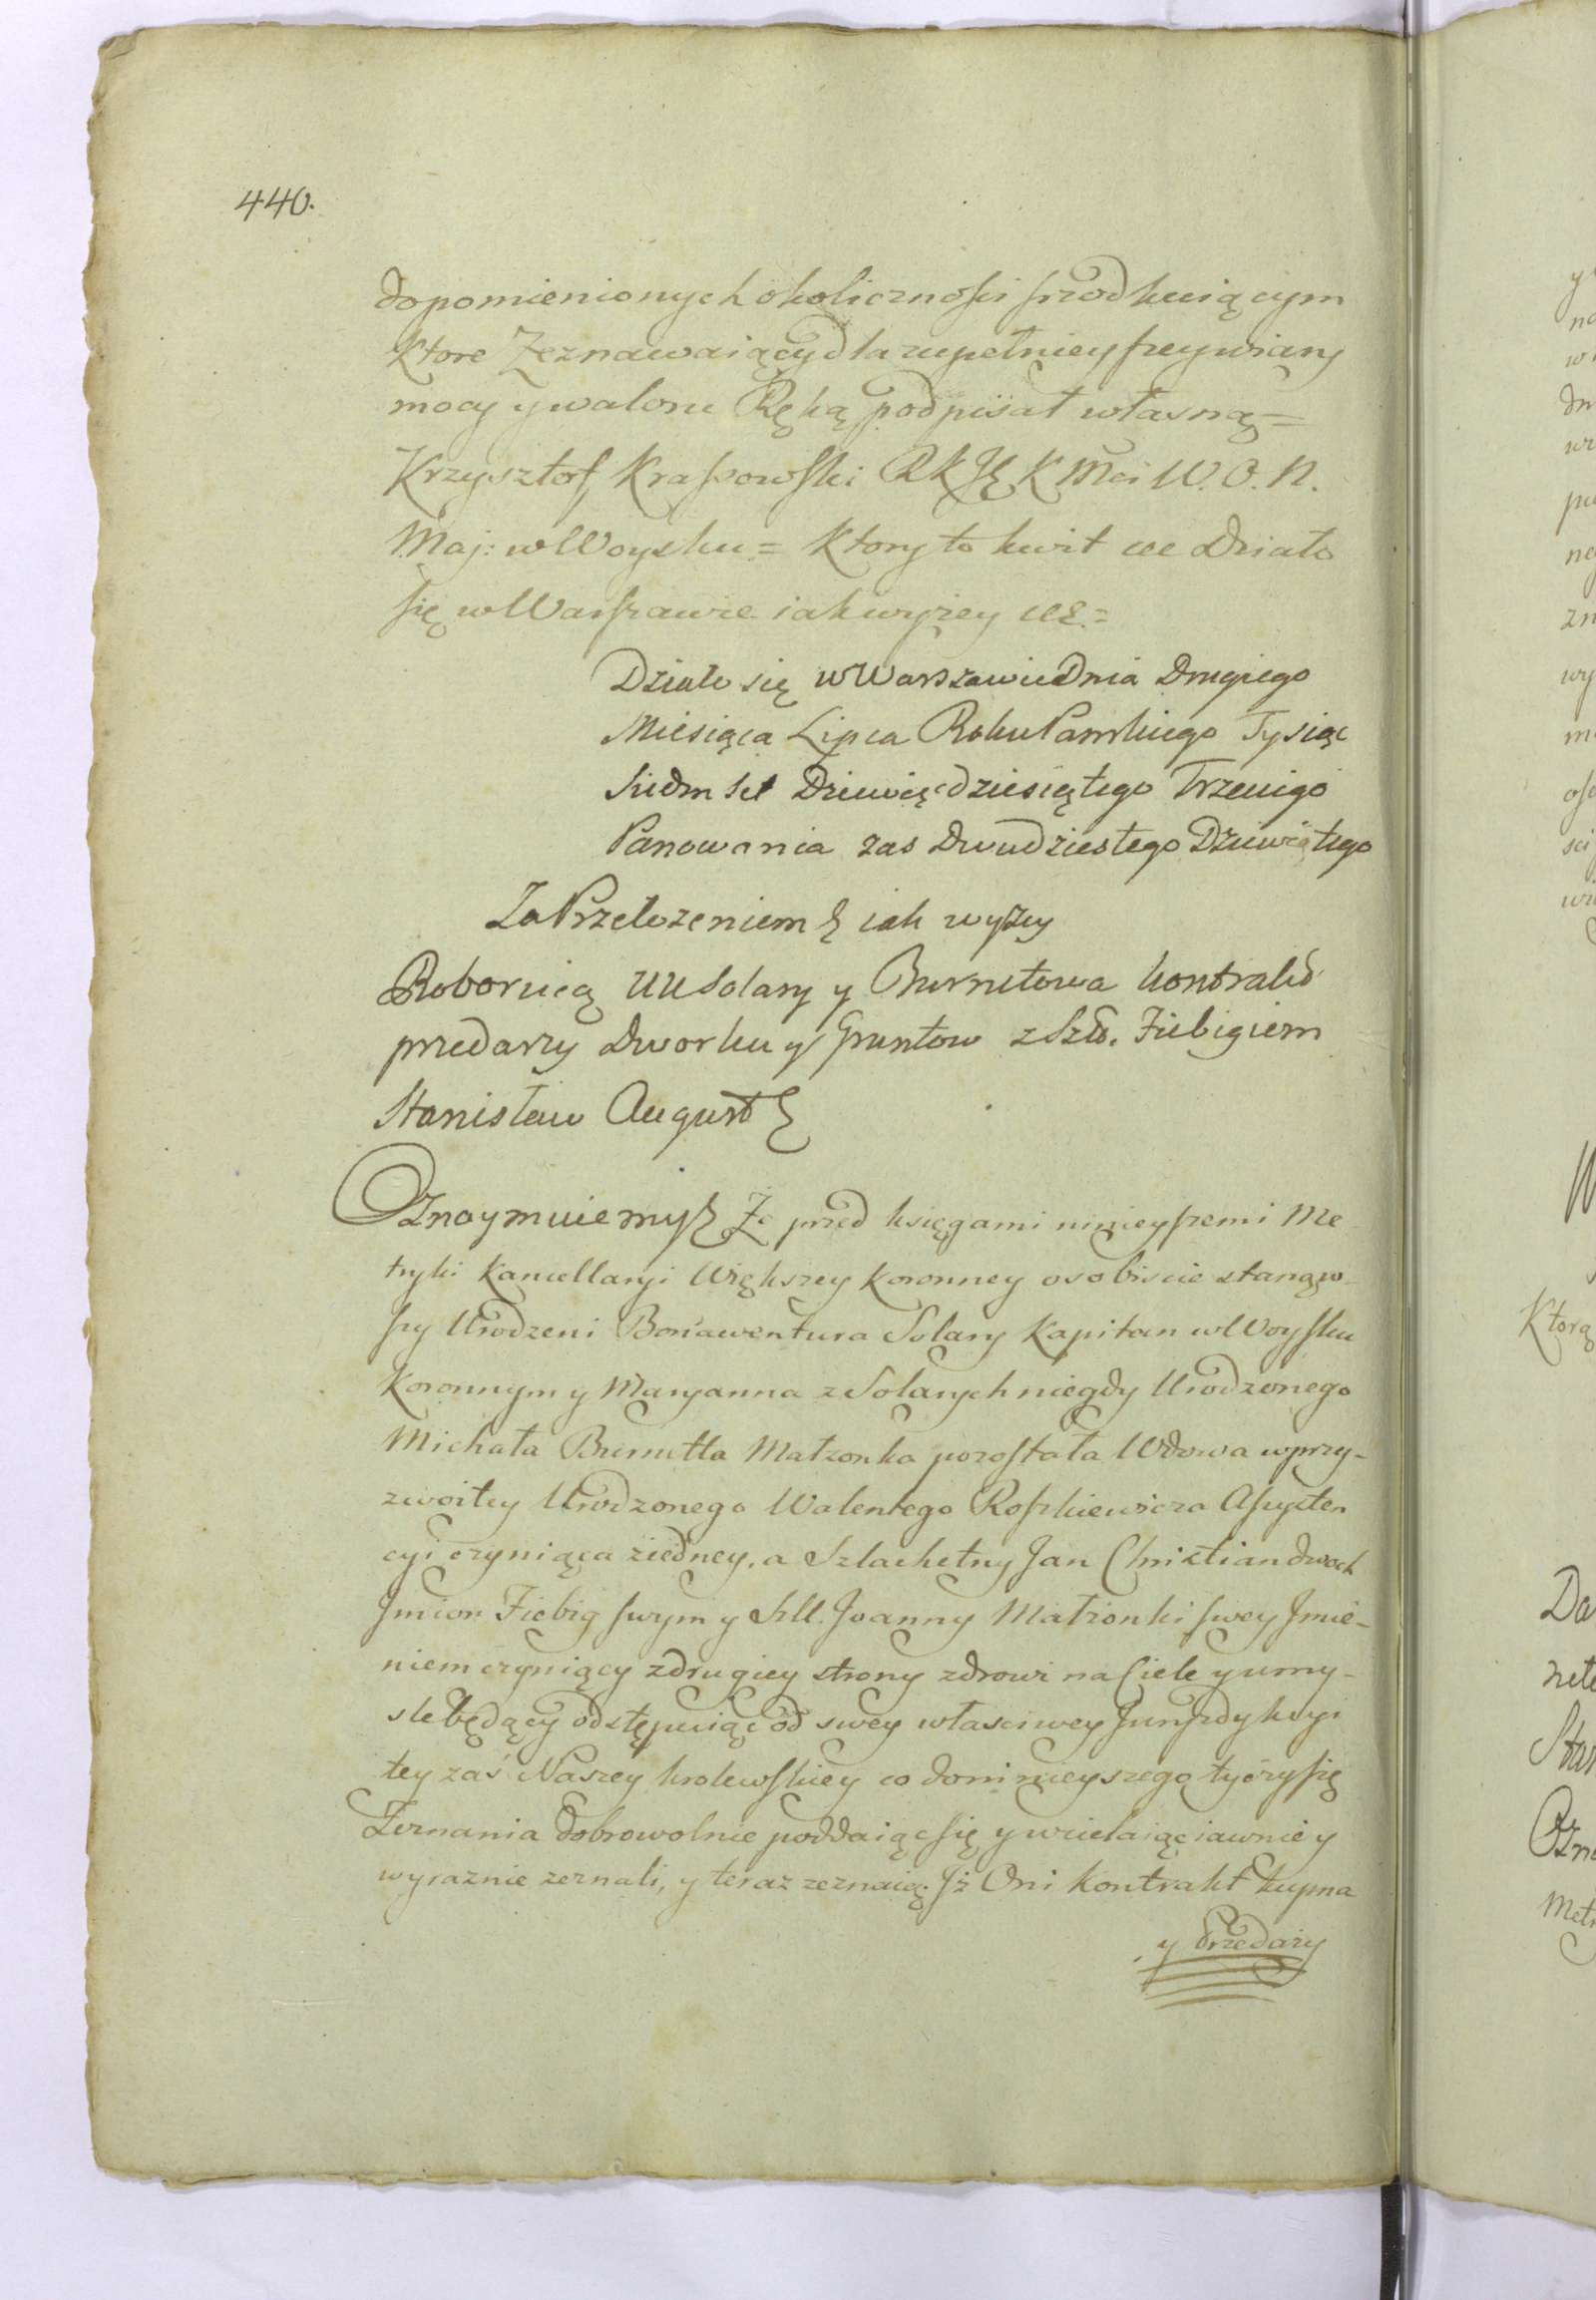 440.
dopomienionych okolicznosci srzodkuiącym
ktore Zeznawaiący dla zupełnieyszey wiary
mocy y waloru Ręką podpisał własną =
Krzysztof Krassowski R K JĘ K Mci W. O. N.
Maj: w Woysku = Ktory to kwit etc Działo
się w Warszawie iak wyżey etc. =
Działo się w Warszawie Dnia Drugiego
Miesiąca Lipca Roku Pańskiego Tysiąc
Siedmset Dziewięćdziesiątego Trzeciego
Panowania zas Dwudziestego Dziewiątego
Za Przełożeniem etc iak wyzey
Roboruią UU Solary y Burnetowa kontrakt
przedarzy Dworku y Gruntow z Szl. Fiebigiem
Stanisław August etc
Oznaymuiemy etc Że przed księgami ninieyszemi Me-
tryki Kancellaryi Większey Koronney osobiscie stanąw-
szy Urodzeni Bonawentura Solary Kapitan w Woysku
Koronnym y Maryanna z Solarych niegdy Urodzonego
Michała Burnetta Małzonka pozostała Wdowa w przy-
zwoitey Urodzonego Walentego Roszkiewicza Assysten
cyi czyniąca z iedney, a Szlachetny Jan Christian dwoch
Jmion Fiebig swym y Szl. Joanny Małżonki swey Jmie-
niem czyniący z drugiey strony zdrowi na Ciele y umy-
sle będący odstępuiąc od swey własciwey Juryzdykcyi
tey zaś Naszey krolewskiey co do ninieyszego tyczy się
Zeznania dobrowolnie poddaiąc się y wcielaiąc iawnie y
wyraznie zeznali, y teraz zeznaią. Jż Oni Kontrakt kupna
y Przedaży